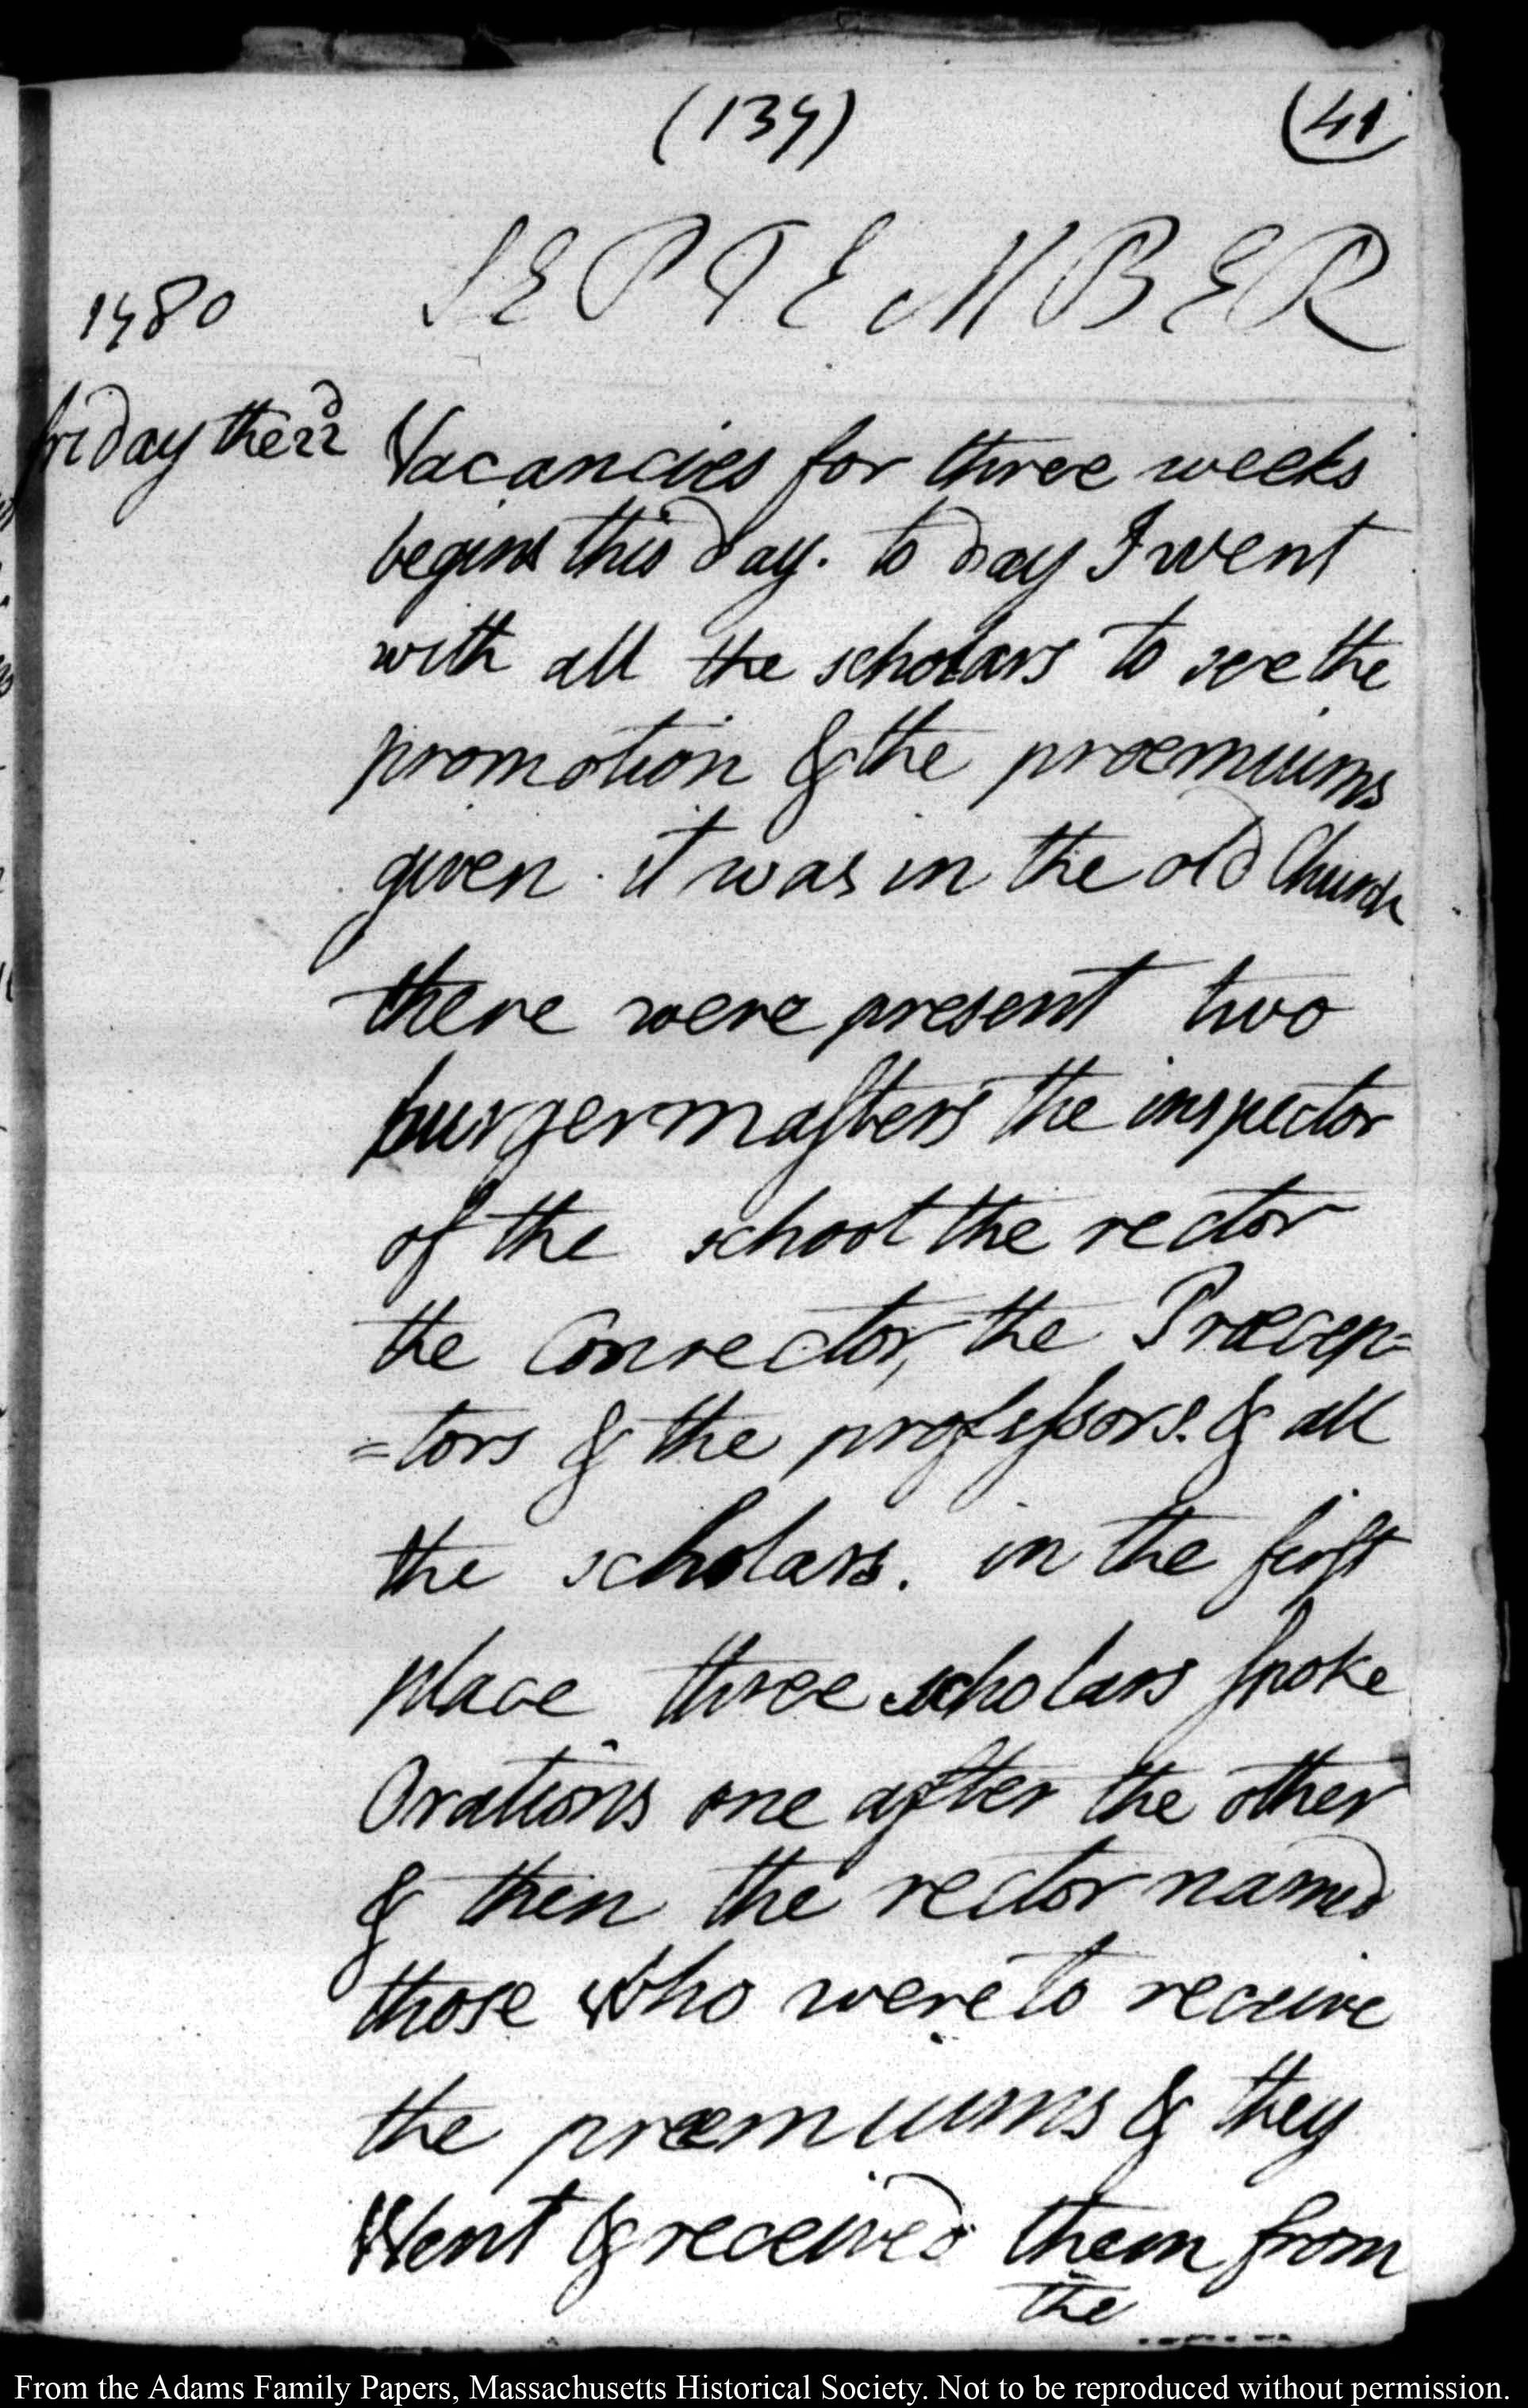 (137) (41
SEPTEMBER
1780
friday the 22d
Vacancies for three weeks
begins this day. to day I went
with all the scholars to see the
promotion & the præmiums
given. it was in the old Church
there were present two
burgermasters the inspector
of the school the rector
the Conrector, the Præcep=
=tors & the professors. & all
the scholars. in the first
place three scholars spoke
Orations one after the other
& then the rector named
those who were to receive
the præmiums & they
Went & received them from
the
From the Adams Family Papers, Massachusetts Historical Society. Not to be reproduced without permission.